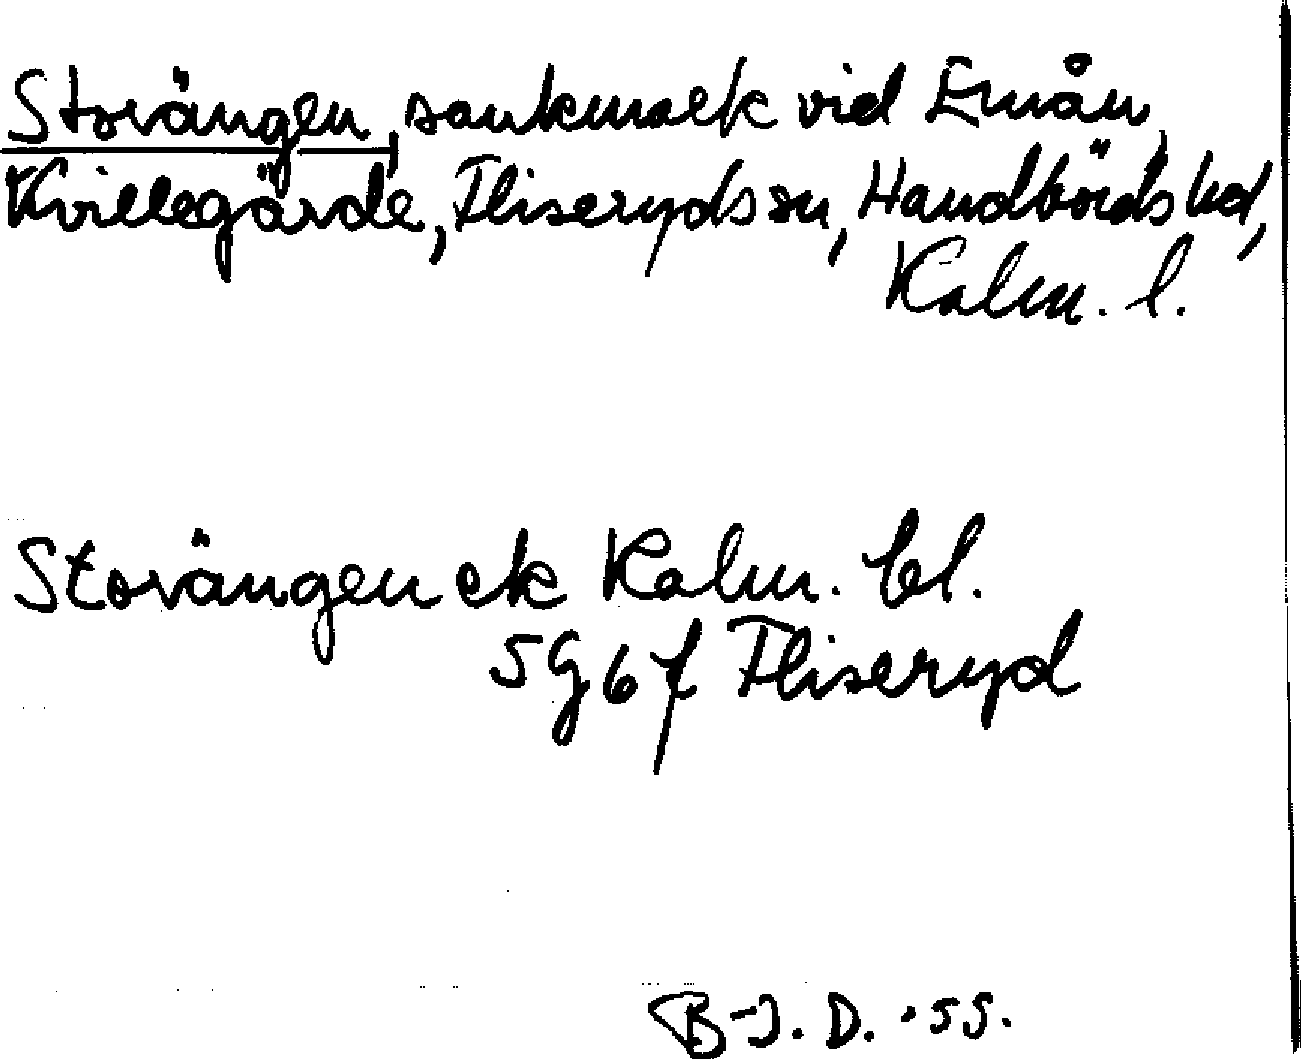 Storängen, sankmark vid Emån,
Kvillegärde, Fliseryds sn, Handbörds hd,
Kalm. l.
Storängen ek Kalm. bl.
5G6f Fliseryd
B-J. D. -55.